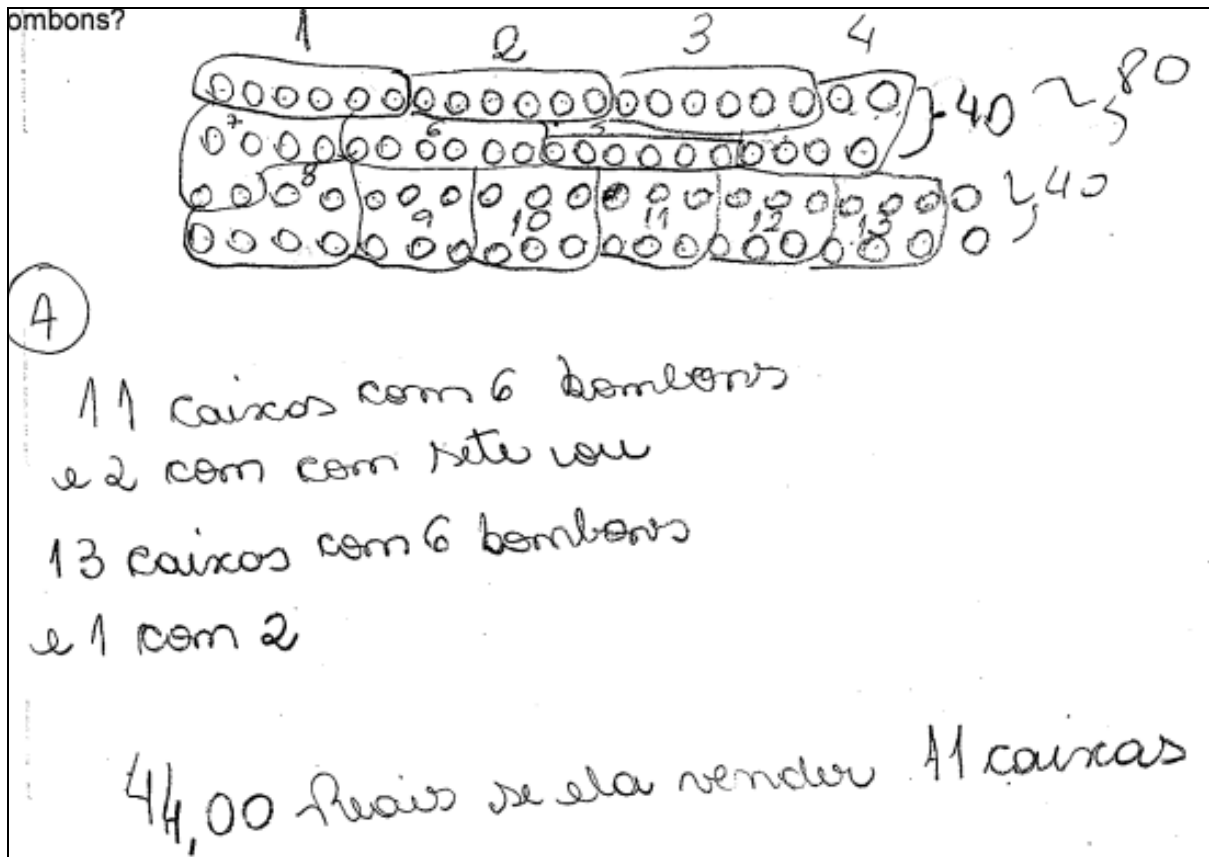 ombons?
1 2 3 4
40 80
7 6 5
8 40
9 10 11 12 13
A
11 caixas com 6 bombons
e 2 com com sete ou
13 caixas com 6 bombons
e 1 com 2
44,00 Reais se ela vender 11 caixas